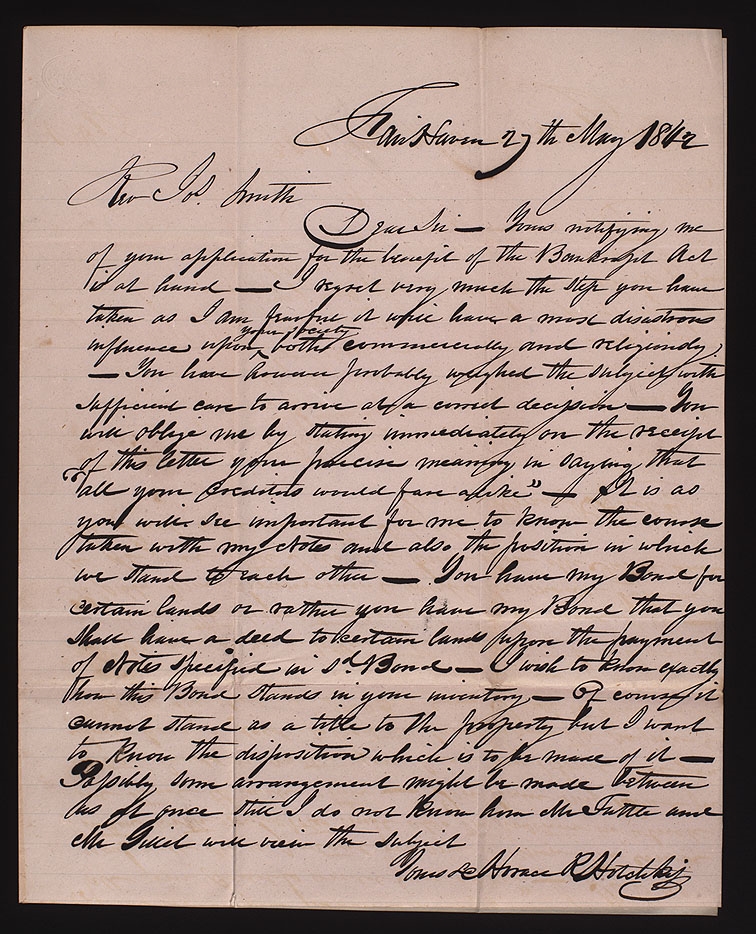 Fair Haven 27th May 1842
Rev Jos. Smith
Dear Sir — Yours notifying me
of your application for the benefit of the Bankrupt Act
is at hand — I regret very much the step you have
taken as I am fearful it will have a most disastrous
influence upon your society both commercially and religiously.
— You have however probably weighed the subject with
sufficient care to arrive at a correct decision — You
will oblige me by stating immediately on the receipt
of this letter your precise meaning in saying that
"all your creditors would fare alike" — It is as
you will see important for me to know the course
taken with my Notes and also the position in which
we stand to each other — You have my Bond for
certain lands or rather you have my Bond that you
shall have a deed to certain lands upon the payment
of Notes specified in sd. Bond — I wish to know exactly
how this Bond stands in your inventory — Of course it
cannot stand as a title to the property but I want
to know the disposition which is to be made of it —
Possibly some arrangement might be made between
us at once still I do not know how Mr Tuttle and
Mr Gillet will view the subject
Yours &c Horace R Hotchkiss